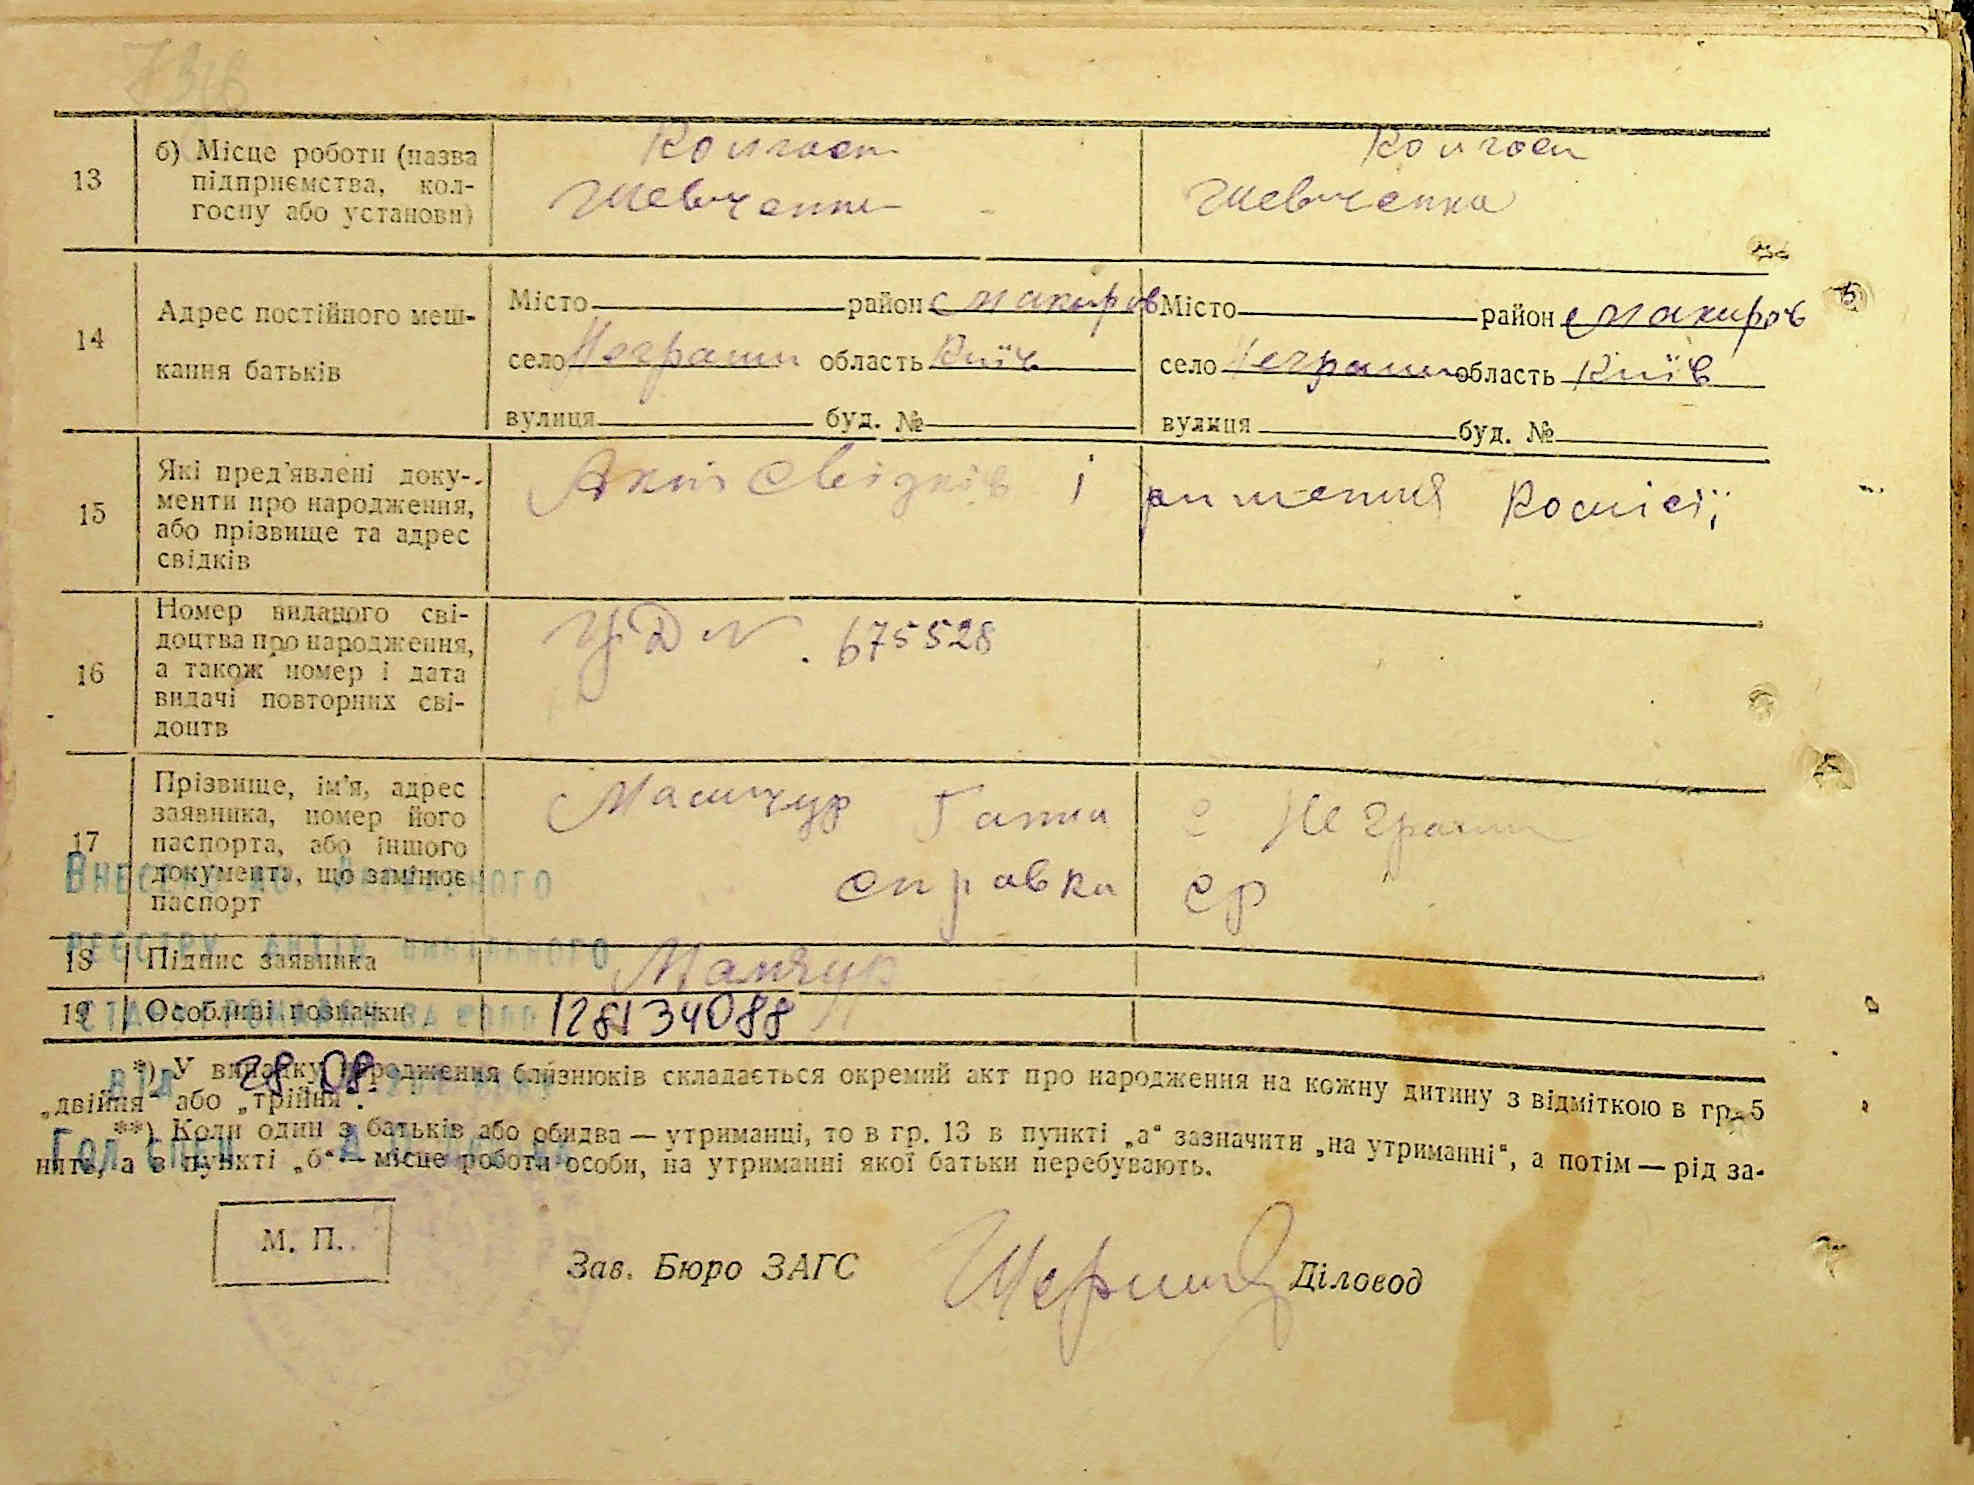 13
б) Місце роботи (назва
підприємства, кол-
госпу або установи)
Колгосп
Шевченка
Колгосп
Шевченка
14
Адрес постійного меш-
кання батьків
Місто район Макарів
село Неграши область Київ
вулиця буд. №
Місто район Макарів
село Неграши область Київ
вулиця буд. №
15
Які пред'явлені доку-
менти про народження,
або прізвище та адрес
свідків
Акт свідків і рішення комісії
16
Номер виданого сві-
доцтва про народження,
а також номер і дата
видачі повторних сві-
доцтв
675528
17
Прізвище, ім'я, адрес
заявника, номер його
паспорта, або іншого
документа, що замінює
паспорт
Мамчур Ганна с Неграши
справка ср
18
Підпис заявника
Мамчур
19
Особливі позначки
128134088
28 08
*) У випадку народження близнюків складається окремий акт про народження на кожну дитину з відміткою в гр. 5
„двійня“ або „трійня“.
**) Коли один з батьків або обидва — утриманці, то в гр. 13 в пункті „а“ зазначити „на утриманні“, а потім — рід за-
няття, а в пункті „б“ — місце роботи особи, на утриманні якої батьки перебувають.
М. П.
Зав. Бюро ЗАГС
Діловод